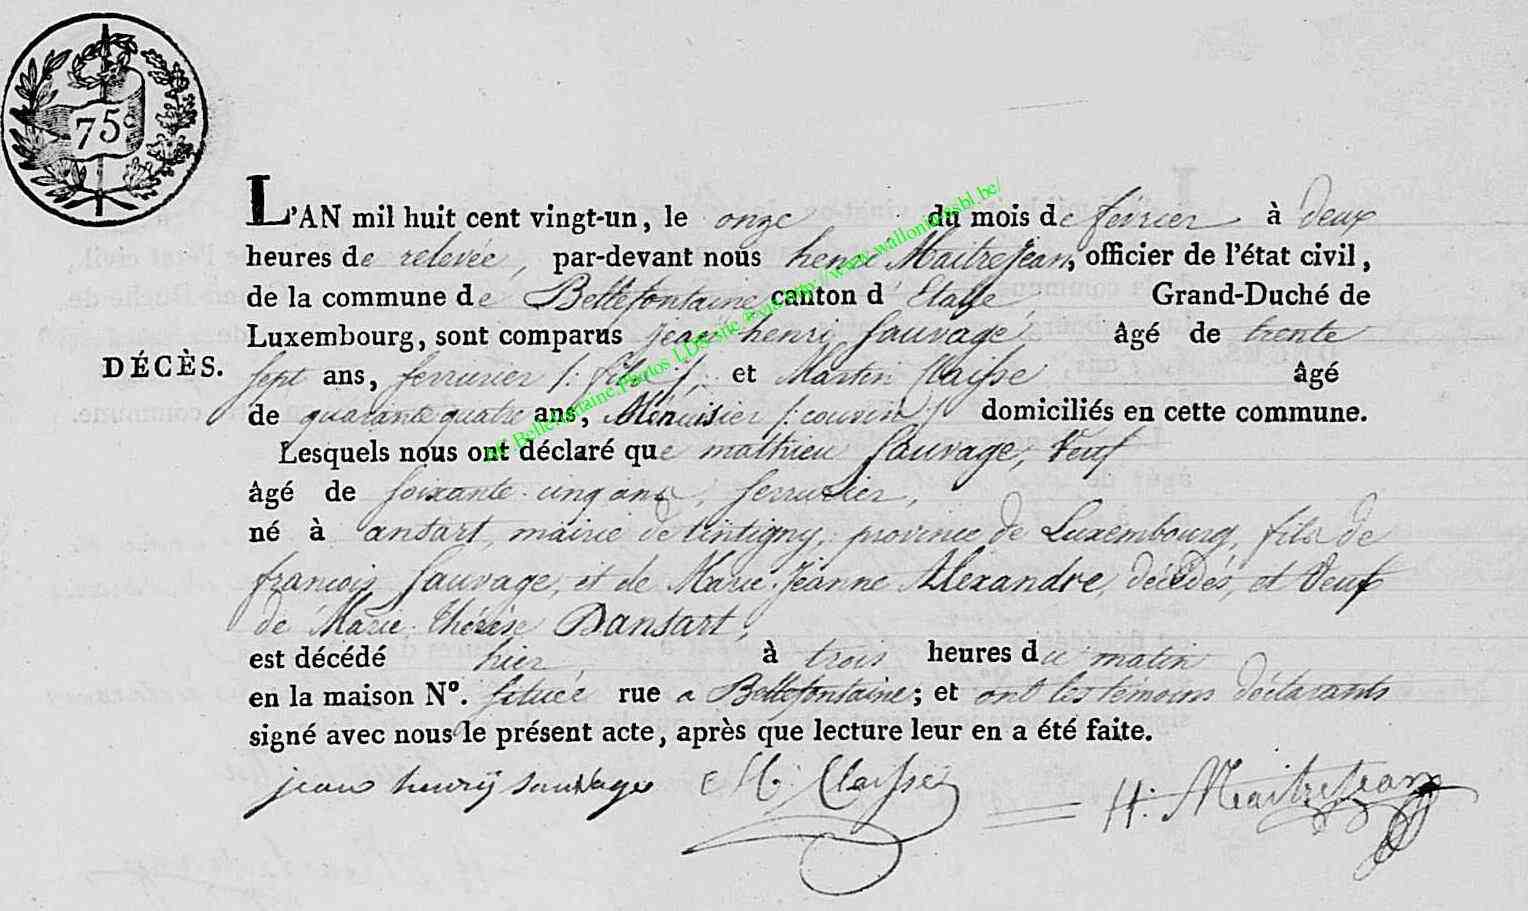 75c
L'AN mil huit cent vingt-un, le onze du mois de février à deux
heures de relevée, par-devant nous henri MaitreJean, officier de l'état civil,
de la commune de Bellefontaine canton d'Etalle Grand-Duché de
Luxembourg, sont comparus jean henri Sauvage âgé de trente
DÉCÈS.
sept ans, serrurier /: fils :/ et Martin Claisse âgé
de quarante quatre ans, Menuisier /: cousin :/ domiciliés en cette commune.
Lesquels nous ont déclaré que mathieu Sauvage, Veuf
âgé de soixante cinq ans, serrurier,
né à ansart, mairie de tintigny, province de Luxembourg, fils de
francois Sauvage, et de Marie Jeanne Alexandre, décédés, et Veuf
de Marie Thérèse Dansart,
est décédé hier à trois heures du matin
en la maison N°. située rue a Bellefontaine; et ont les témoins déclarants
signé avec nous le présent acte, après que lecture leur en a été faite.
jean henrÿ sauvage M. Claisse H. MaitreJean